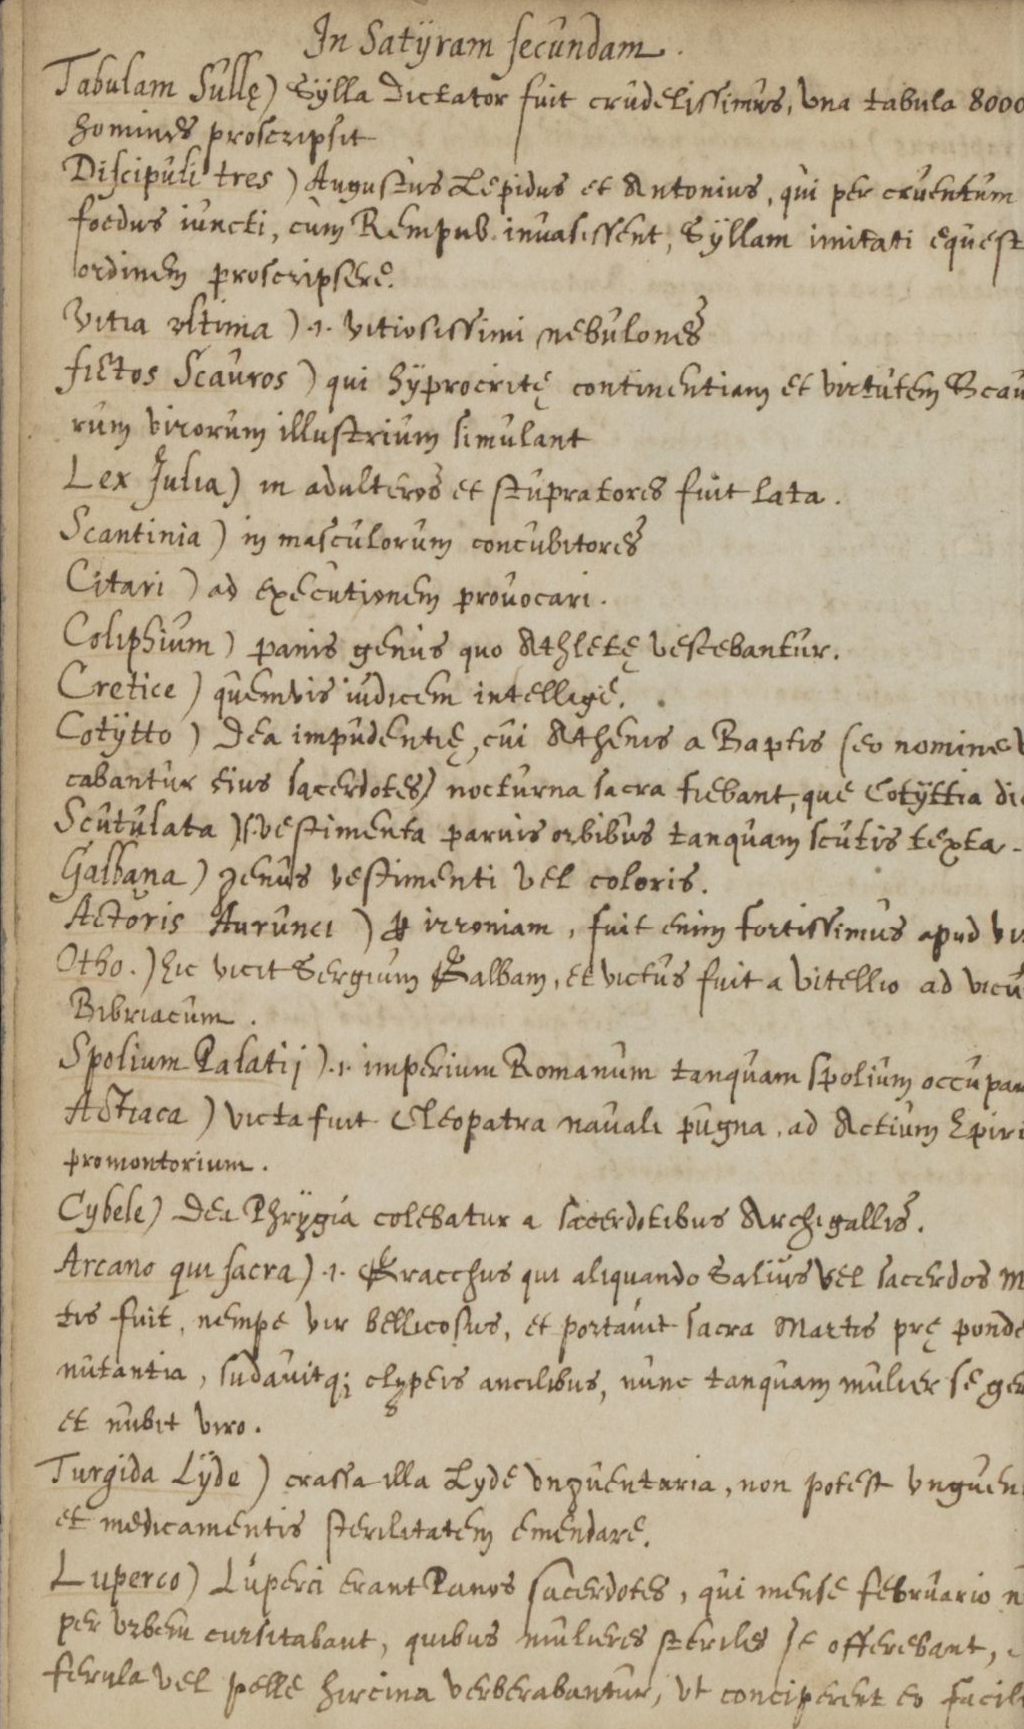 In Satÿram secundam.
Tabulam Sullę) Sÿlla Dictator fuit crudelissimus, una tabula 8000
homines proscripsit
Discipuli tres) Augustus Lepidus et Antonius, qui per cruentum
foedus iuncti, cum Rempub. invasissent, Sÿllam imitati equest
ordinem proscripsere.
Vitia ultima) .1. vitiosissimi nebulones
fictos Scauros) qui hÿprocritę continentiam et virtutem Scau
rum virorum illustrium simulant
Lex Julia) in adulteros et stupratores fuit lata.
Scantinia) in masculorum concubitores
Citari) ad executionem provocari.
Coliphium) panis genus quo Athletę vescebantur.
Cretice) quemvis iudicem intellige.
Cotÿtto) Dea impudentię, cui Athenis a Baptis (eo nomine v
cabantur eius sacerdotes) nocturna sacra fiebant, que Cotÿttia dic
Scutulata) s. vestimenta parvis orbibus tanquam scutis texta.
Galbana) genus vestimenti vel coloris.
Actoris Aurunci) irroniam, fuit enim fortissimus apud vir
Otho.) hic vicit Sergium Galbam, et victus fuit a Vitellio ad vicu
Bibriacum.
Spolium Palatij) .1. imperium Romanum tanquam spolium occupar
Actiaca) victa fuit Cleopatra navali pugna, ad Actium Epiri
promontorium.
Cybele) Dea Phrÿgia colebatur a sacerdotibus Archigallis.
Arcano qui sacra) .1. Gracchus qui aliquando Salius vel sacerdos M
tis fuit, nempe vir bellicosus, et portavit sacra Martis prę ponde
nutantia, sudavitq; clypeis ancilibus, nunc tanquam mulier se ger
et nubit viro.
Turgida Lÿde) crassa illa Lyde unguentaria, non potest unguen
et medicamentis sterilitatem emendare.
Luperco) Luperci erant Panos sacerdotes, qui mense februario n
per urbem cursitabant, quibus mulieres steriles se offerebant,
ferula vel pelle hircina verberabantur, ut conciperent eo facili